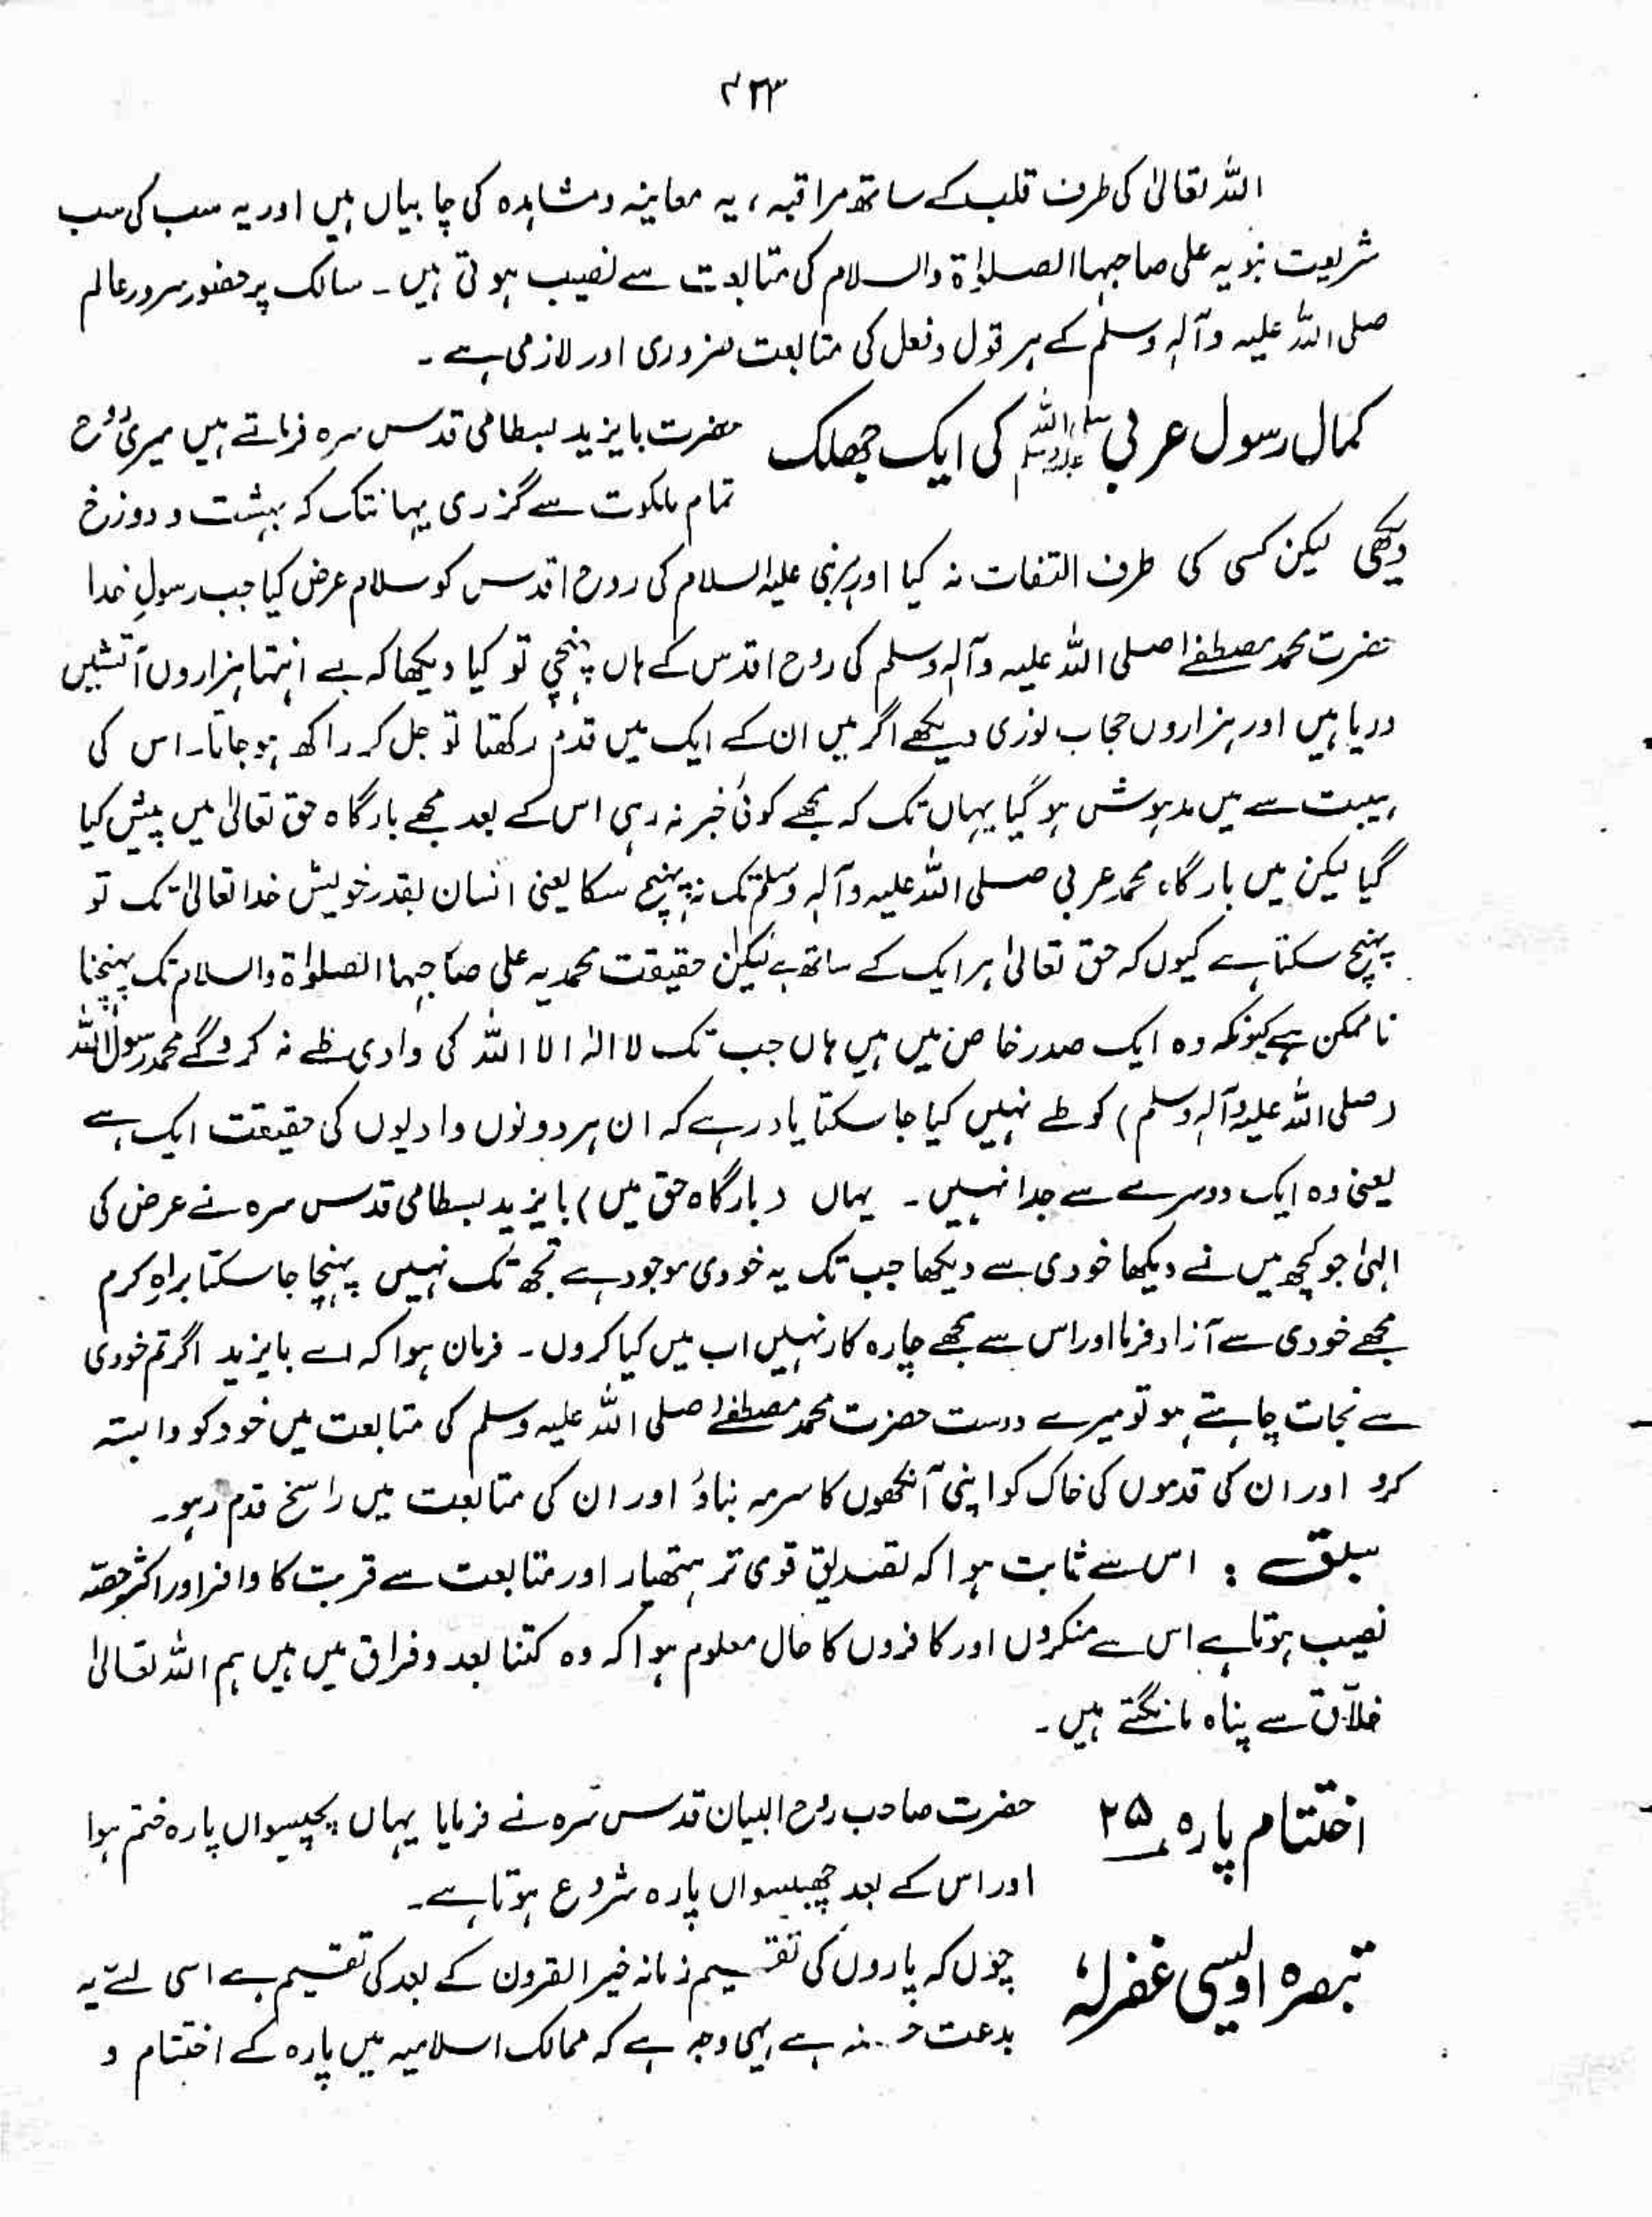 ۴۲۳
اللہ تعالیٰ کی طرف قلب کے ساتھ مراقبہ، یہ معاینہ ومشاہدہ کی چابیاں ہیں اور یہ سب کی سب
شریعت نبویہ علی صاحبہا الصلوٰۃ والسلام کی متابعت سے نصیب ہوتی ہیں۔ سالک پر حضور سرور عالم
صلی اللہ علیہ وآلہٖ وسلم کے ہر قول وفعل کی متابعت ضروری اور لازمی ہے۔
کمال رسول عربی صلی اللہ علیہ وآلہ وسلم کی ایک جھلک
حضرت بایزید بسطامی قدس سرہ فرماتے ہیں میری رُوح
تمام ملکوت سے گزری یہانتک کہ بہشت و دوزخ
دیکھی لیکن کسی کی طرف التفات نہ کیا اور ہر نبی علیہ السلام کی روح اقدس کو سلام عرض کیا جب رسولِ خدا
حضرت محمد مصطفےٰ صلی اللہ علیہ وآلہ وسلم کی روح اقدس کے ہاں پہنچی تو کیا دیکھا کہ بے انہتا ہزاروں آتشیں
دریا ہیں اور ہزاروں حجاب نوری دیکھے اگر میں ان کے ایک میں قدم رکھتا تو جل کر راکھ ہو جاتا۔ اس کی
ہیبت سے میں مدہوش ہو گیا یہاں تک کہ مجھے کوئی خبر نہ رہی اس کے بعد مجھے بارگاہ حق تعالیٰ میں پیش کیا
گیا لیکن میں بارگاہ محمد عربی صلی اللہ علیہ وآلہ وسلم تک نہ پہنچ سکا یعنی انسان بقدر خویش خدا تعالیٰ تک تو
پہنچ سکتا ہے کیوں کہ حق تعالیٰ ہر ایک کے ساتھ ہے لیکن حقیقت محمدیہ علی صاحبہا الصلوٰۃ والسلام تک پہنچنا
ناممکن ہے کیونکہ وہ ایک صدر خاص میں ہیں ہاں جب تک لا الٰہ الا اللہ کی وادی طے نہ کرو گے محمد رسول اللہ
(صلی اللہ علیہ وآلہ وسلم) کو طے نہیں کیا جا سکتا یاد رہے کہ ان ہر دونوں وادیوں کی حقیقت ایک ہے
یعنی وہ ایک دوسرے سے جدا نہیں۔ یہاں (بارگاہ حق میں) بایزید بسطامی قدس سرہ نے عرض کی
الہٰی جو کچھ میں نے دیکھا خودی سے دیکھا جب تک یہ خودی موجود ہے تجھ تک نہیں پہنچا جا سکتا براہِ کرم
مجھے خودی سے آزاد فرما اور اس سے مجھے چارہ کار نہیں اب میں کیا کروں۔ فرمان ہوا کہ اے بایزید اگر تم خودی
سے نجات چاہتے ہو تو میرے دوست حضرت محمد مصطفےٰ صلی اللہ علیہ وسلم کی متابعت میں خود کو وابستہ
کرو اور ان کی قدموں کی خاک کو اپنی آنکھوں کا سرمہ بناؤ اور ان کی متابعت میں راسخ قدم رہو۔
سبق : اس سے ثابت ہوا کہ تصدیق قوی تر ہتھیار اور متابعت سے قربت کا وافر اور اکثر حصّہ
نصیب ہوتا ہے اس سے منکروں اور کافروں کا حال معلوم ہوا کہ وہ کتنا بعد وفراق میں ہیں ہم اللہ تعالیٰ
خلّاق سے پناہ مانگتے ہیں۔
اختتام پارہ ۲۵
حضرت صاحب روح البیان قدس سرہ نے فرمایا یہاں پچیسواں پارہ ختم ہوا
اور اس کے بعد چھبیسواں پارہ شروع ہوتا ہے۔
تبصرہ اویسی غفرلہٗ
چوں کہ پاروں کی تقسیم زمانہ خیر القرون کے بعد کی تقسیم ہے اسی لئے یہ
بدعت حسنہ ہے یہی وجہ ہے کہ ممالک اسلامیہ میں پارہ کے اختتام و